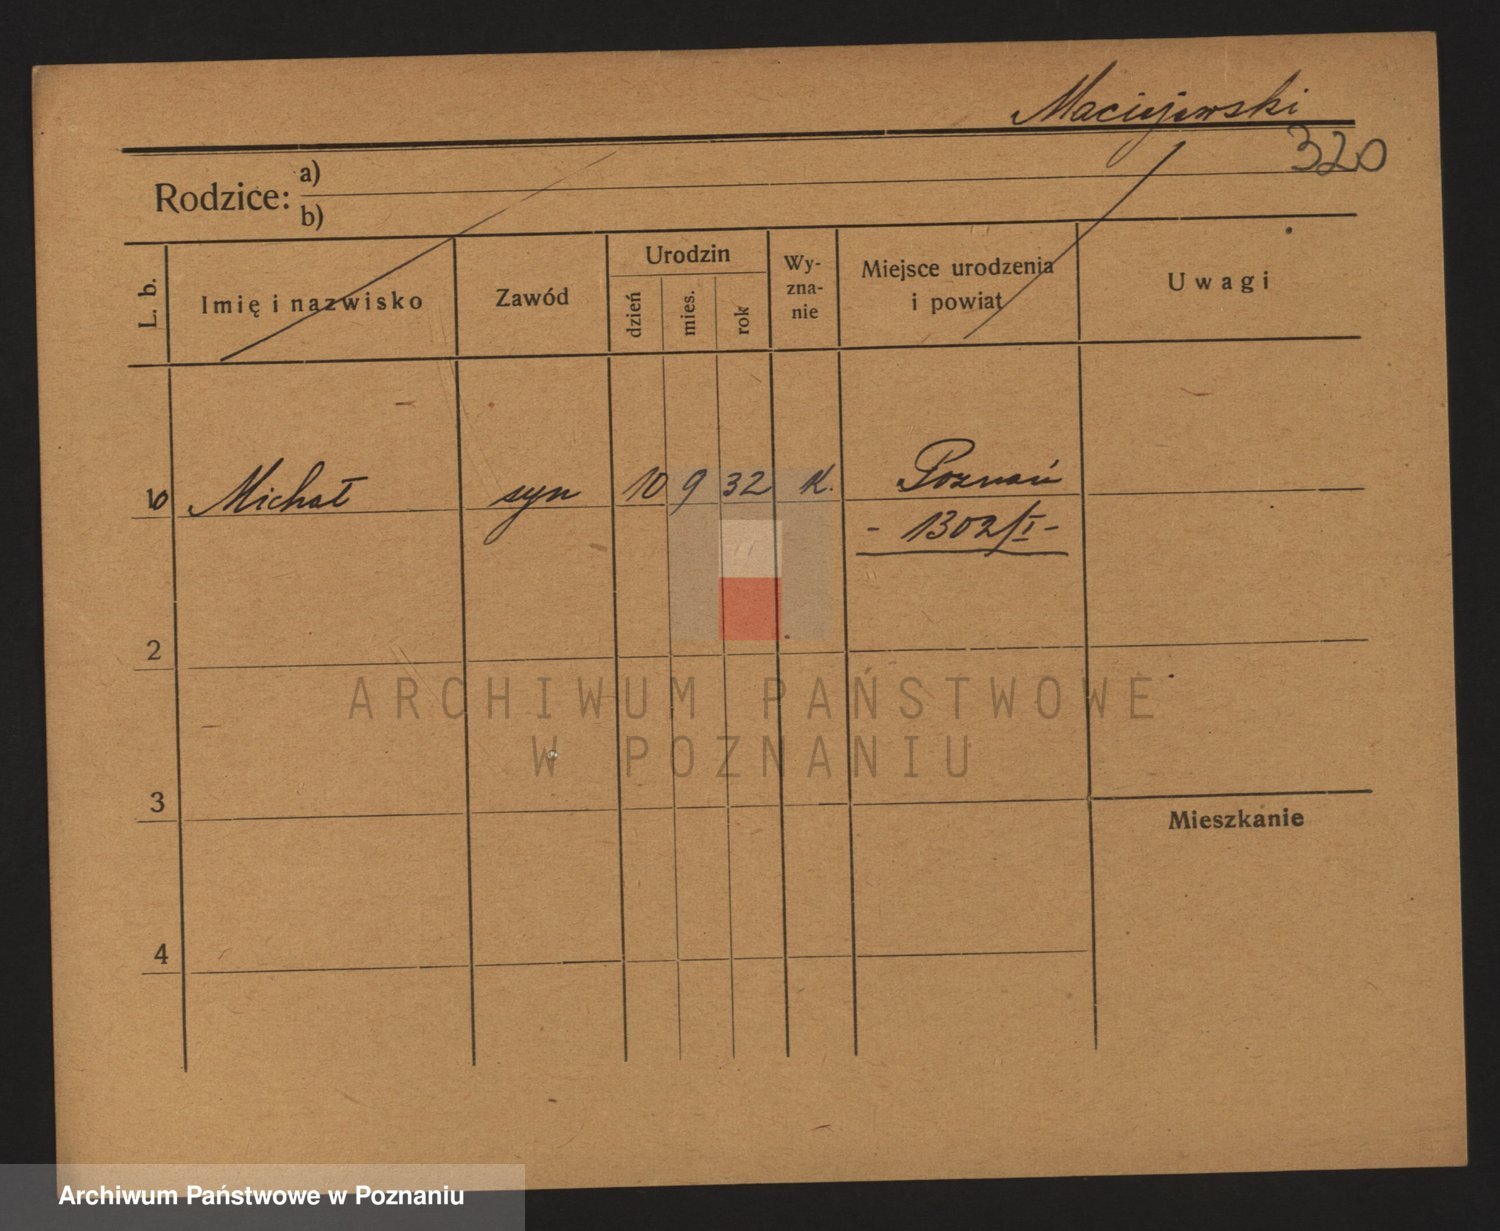 Maciejewski
320
Rodzice: a)
b)
L. b.
Imię i nazwisko
Zawód
Urodzin
dzień
mies.
rok
Wy-
zna-
nie
Miejsce urodzenia
i powiat
Uwagi
6 Michał syn 10 9 32 k. Poznań
- 1302/I -
2
ARCHIWUM PAŃSTWOWE
W POZNANIU
3
Mieszkanie
4
Archiwum Państwowe w Poznaniu